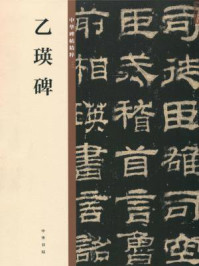 乙瑛碑
中华碑帖精粹
中华书局
司徒臣雄司空
臣戒稽首言魯
前相瑛書言詔